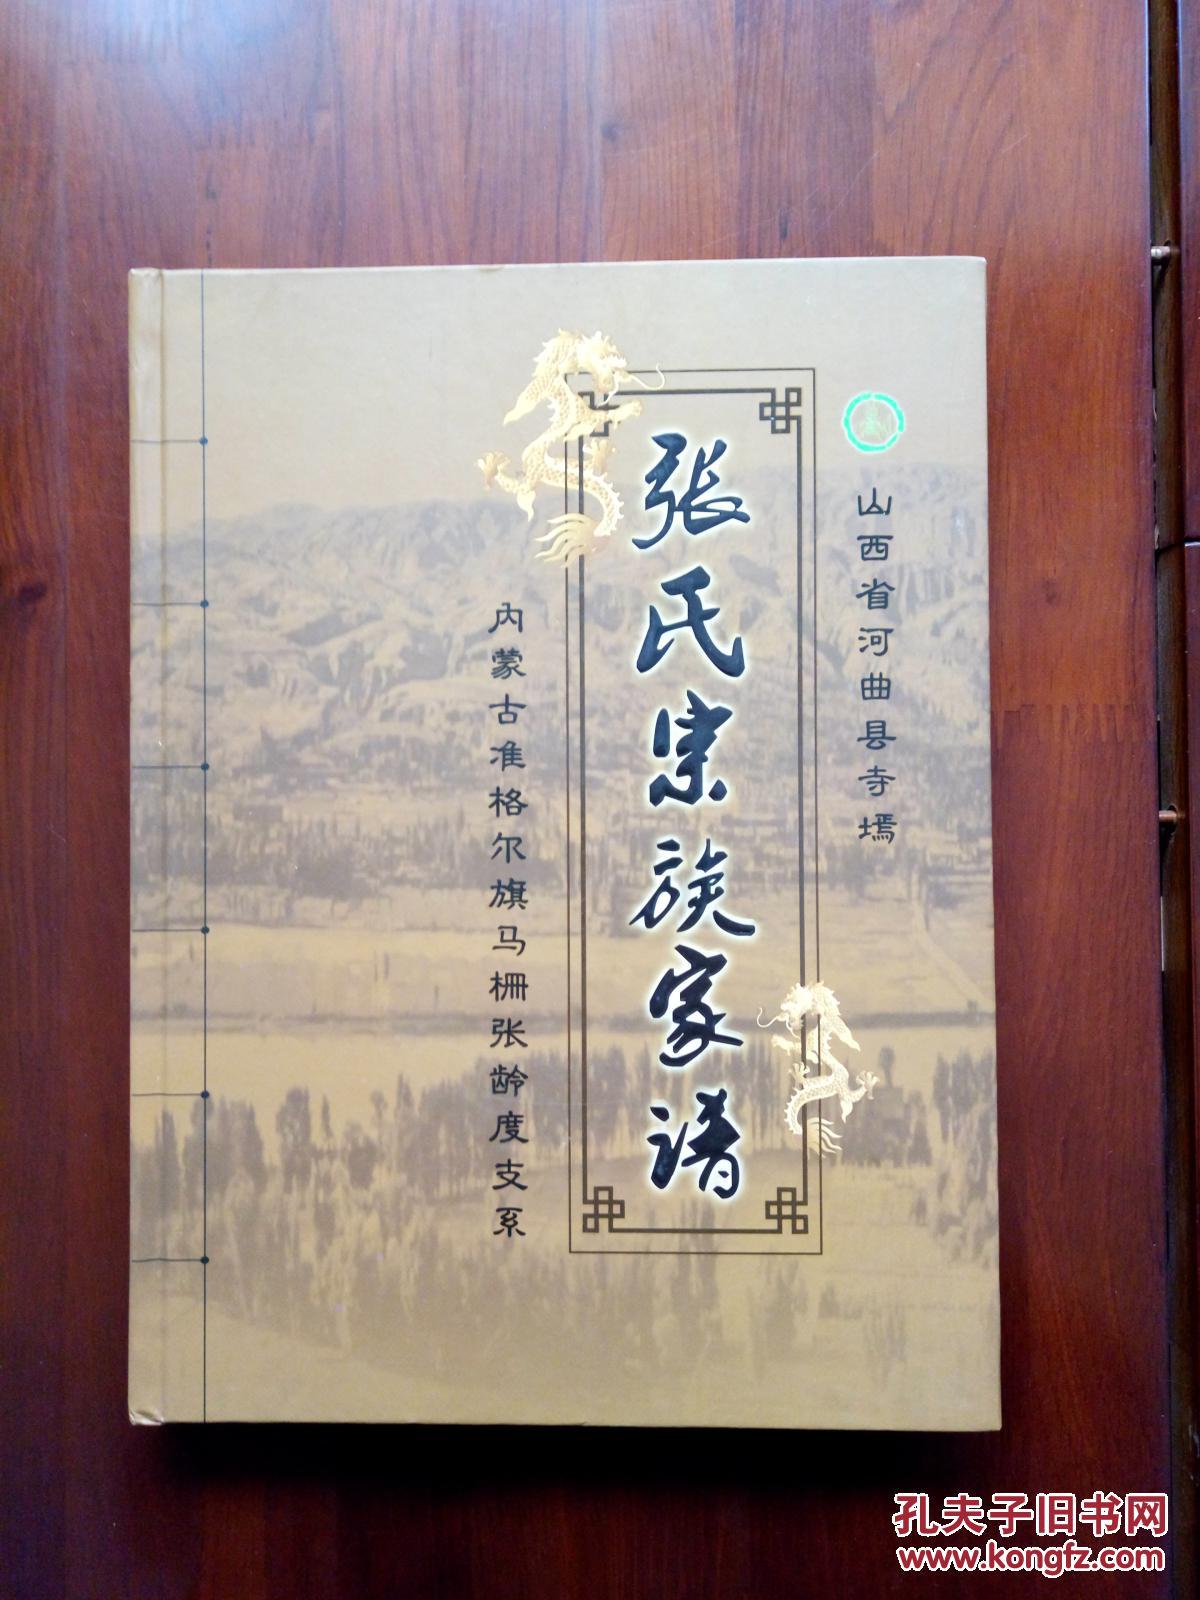 山西省河曲县寺墕
张氏宗族家谱
内蒙古准格尔旗马栅张龄度支系
孔夫子旧书网
www.kongfz.com